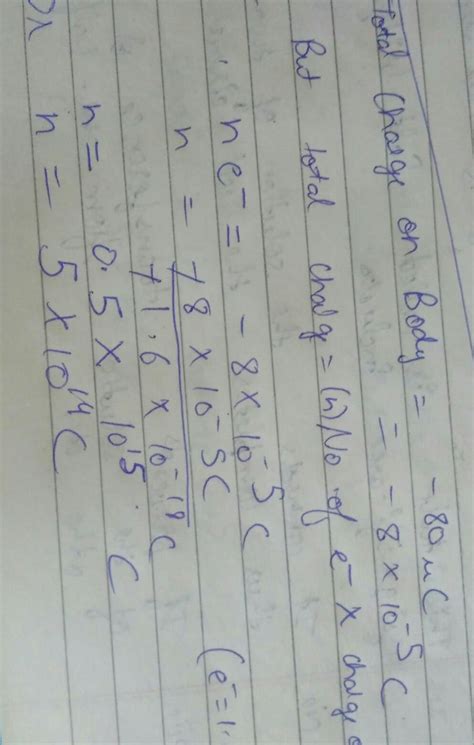 Total Charge on Body = - 80 uC
= - 8 × 10⁻⁵ C
But total charge = (n) No of e⁻ × charge
n e⁻ = - 8 × 10⁻⁵ C (e⁻ = 1.
n = - 8 × 10⁻⁵ C
- 1.6 × 10⁻¹⁹ C
n = 0.5 × 10¹⁵ C
n = 5 × 10¹⁴ C